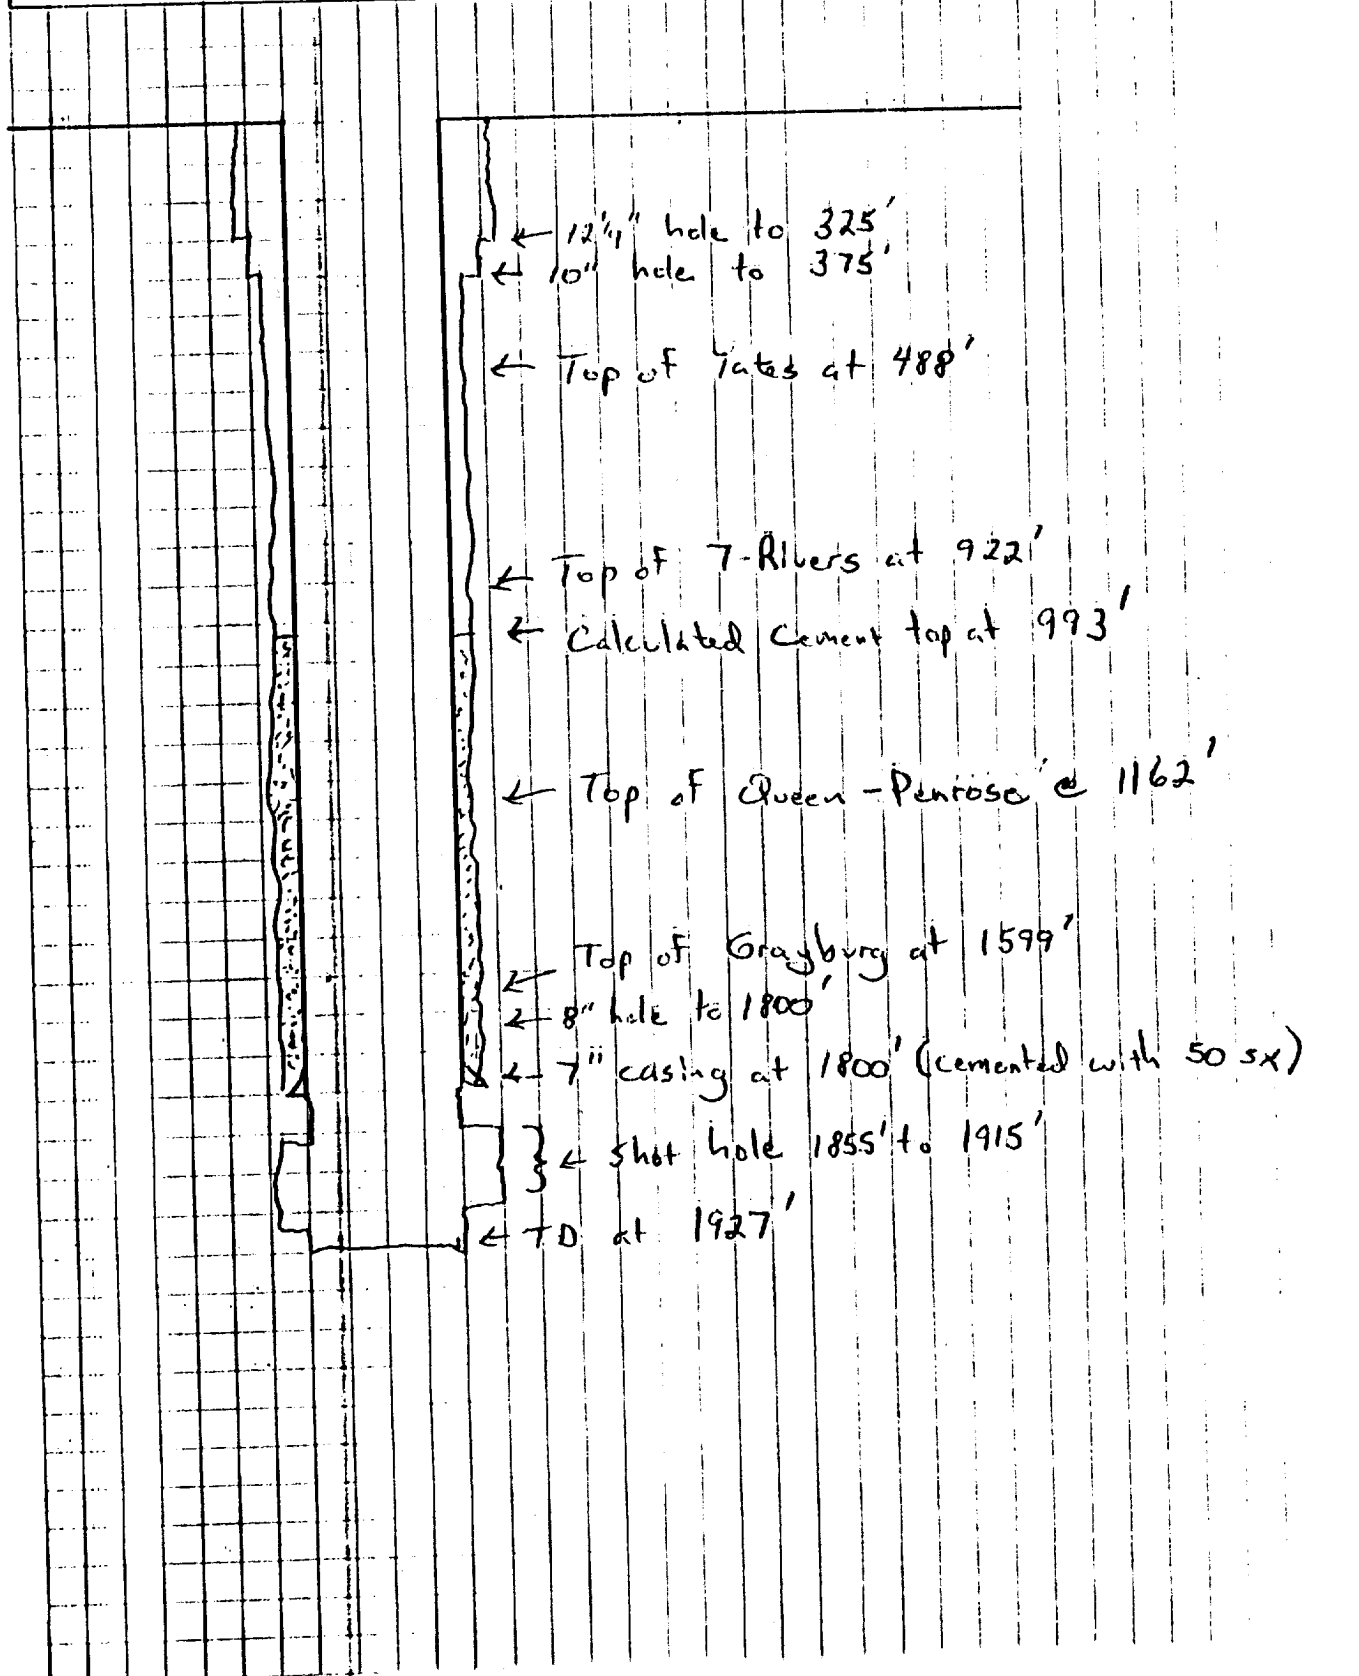 ← 12 1/4" hole to 325'
← 10" hole to 375'
← Top of Yates at 488'
← Top of 7-Rivers at 922'
← Calculated Cement top at 993'
← Top of Queen-Penrose @ 1162'
← Top of Grayburg at 1599'
← 8" hole to 1800'
← 7" casing at 1800' (cemented with 50 sx)
} ← shot hole 1855' to 1915'
← TD at 1927'